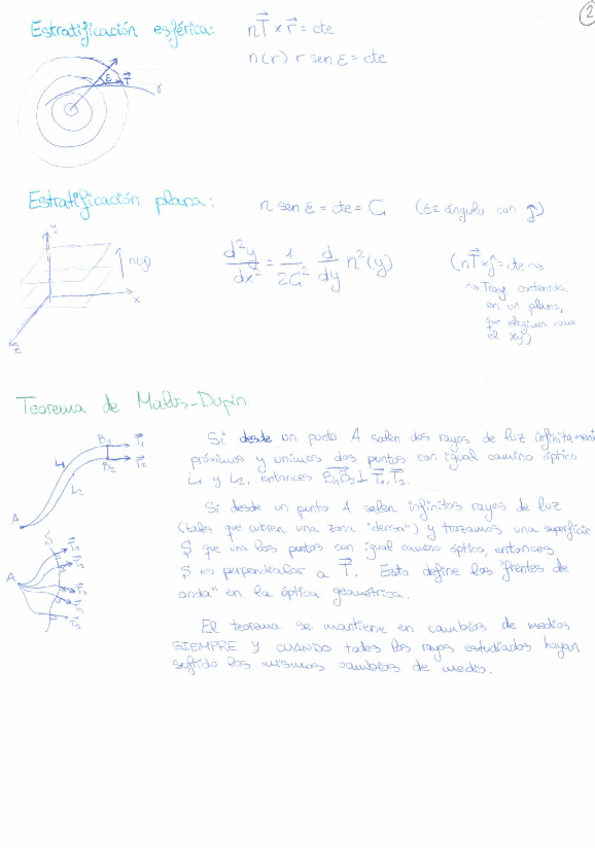 2
Estratificación esférica: nT⃗ × r⃗ = cte
n(r) r sen ε = cte
ε T⃗
γ
Estratificación plana: n sen ε = cte = C₁ (ε = ángulo con ĵ)
y
n(y)
x
z
d²y/dx² = 1/2C₁² d/dy n²(y)
(nT⃗ × ĵ = cte ⇝
⇝ Tray contenida
en un plano,
que elegimos como
el xy)
Teorema de Malus-Dupin:
A L₁ L₂ B₁ B₂ T⃗₁ T⃗₂
Si desde un punto A salen dos rayos de luz infinitamente
próximos y unimos dos puntos con igual camino óptico
L₁ y L₂, entonces B₁B₂ ⊥ T⃗₁, T⃗₂.
Si desde un punto A salen infinitos rayos de luz
(tales que cubren una zona "densa") y trazamos una superficie
S que una los puntos con igual camino óptico, entonces
S es perpendicular a T⃗. Esto define los "frentes de
onda" en la óptica geométrica.
A S
El teorema se mantiene en cambios de medios
SIEMPRE Y CUANDO todos los rayos estudiados hayan
sufrido los mismos cambios de medio.